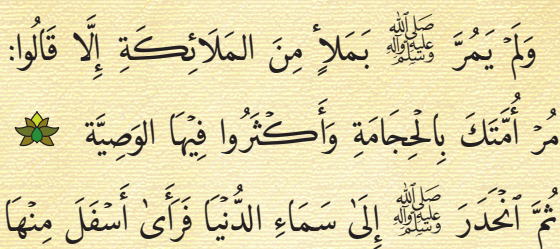 وَلَمْ يَمُرَّ ﷺ بَمَلَأٍ مِنَ المَلَائِكَةِ إِلَّا قَالُوا:
مُرْ أُمَّتَكَ بِالْحِجَامَةِ وَأَكْثَرُوا فِيْهَا الوَصِيَّة
ثُمَّ ٱنْحَدَرَ ﷺ إِلَىٰ سَمَاءِ الدُّنْيَا فَرَأَىٰ أَسْفَلَ مِنْهَا